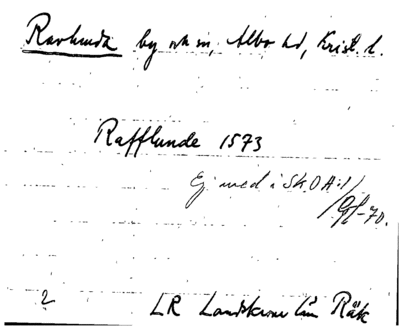 Ravlunda by o sn, Albo hd, Krist. l.
Rafflunde 1573
Ej med i Sk.O A:1
/Gf-70.
2 LR Landskrone Län Räk